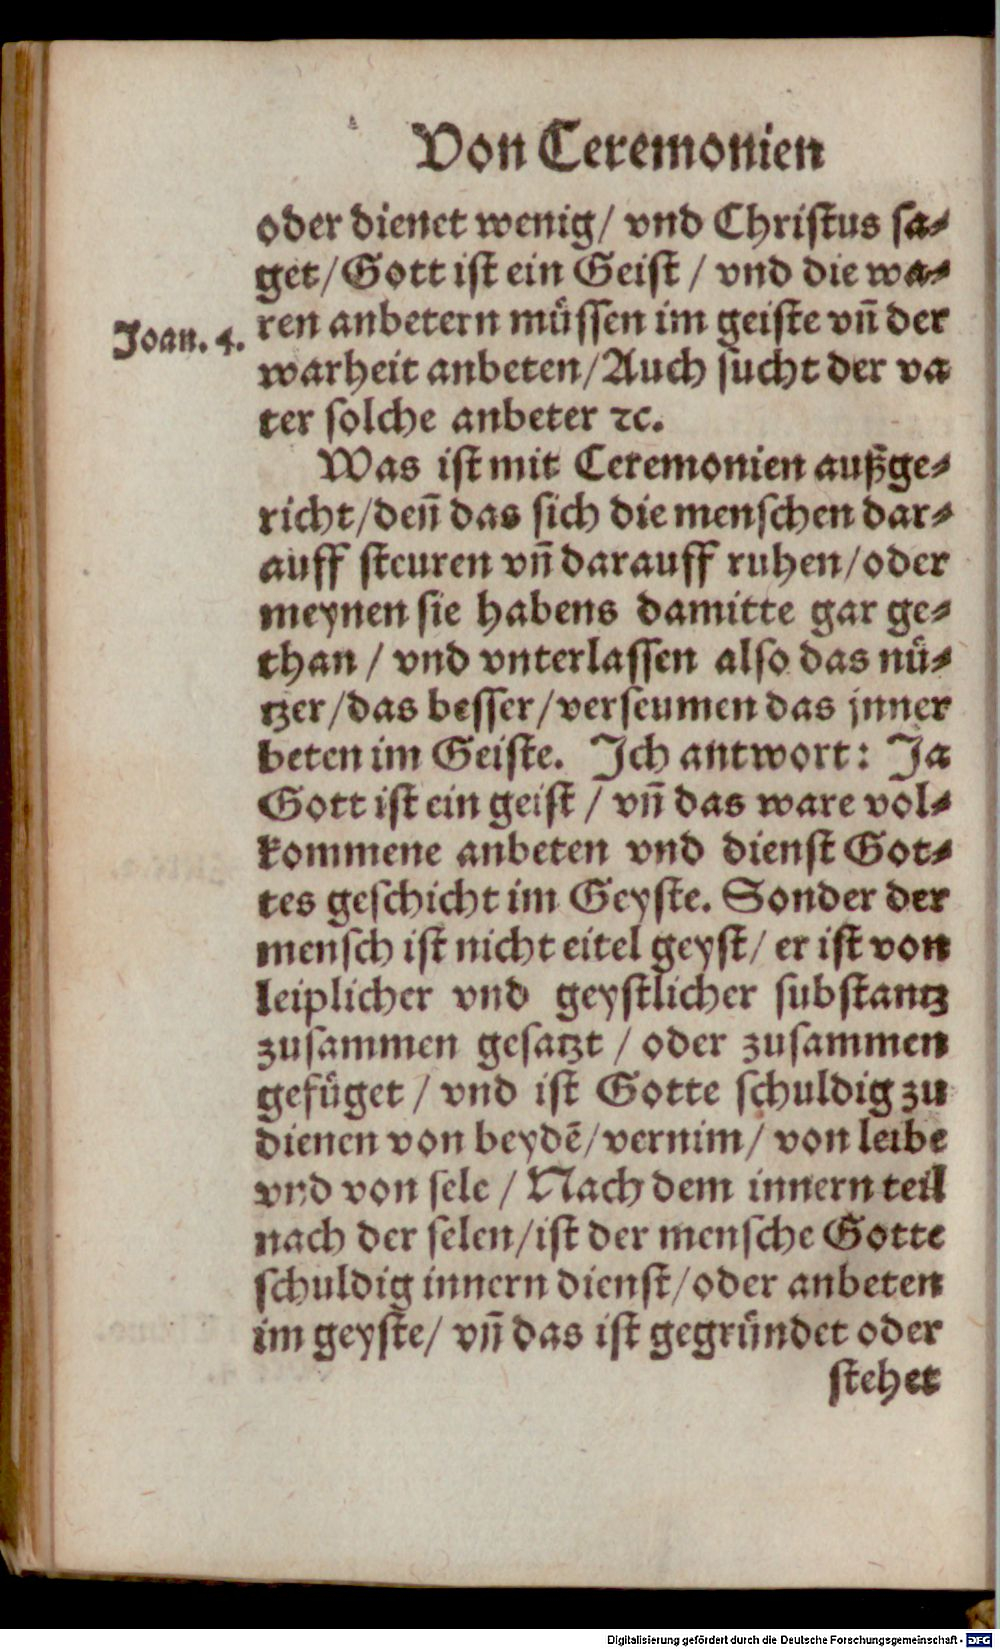 Von Ceremonien
oder dienet wenig/ vnd Christus sa⸗
get/ Gott ist ein Geist / vnd die wa⸗
Joan. 4.
ren anbetern müssen im geiste vñ der
warheit anbeten/ Auch sucht der va
ter solche anbeter ⁊c.
Was ist mit Ceremonien außge⸗
richt/ deñ das sich die menschen dar⸗
auff steuren vñ darauff ruhen/ oder
meynen sie habens damitte gar ge⸗
than / vnd vnterlassen also das nü⸗
tzer/ das besser/ verseumen das jnner
beten im Geiste. Ich antwort: Ja
Gott ist ein geist / vñ das ware vol⸗
kommene anbeten vnd dienst Got⸗
tes geschicht im Geyste. Sonder der
mensch ist nicht eitel geyst/ er ist von
leiplicher vnd geystlicher substantz
zusammen gesatzt / oder zusammen
gefüget / vnd ist Gotte schuldig zu
dienen von beydē/ vernim/ von leibe
vnd von sele / Nach dem innern teil
nach der selen/ ist der mensche Gotte
schuldig innern dienst/ oder anbeten
im geyste/ vñ das ist gegründet oder
stehet
Digitalisierung gefördert durch die Deutsche Forschungsgemeinschaft - DFG